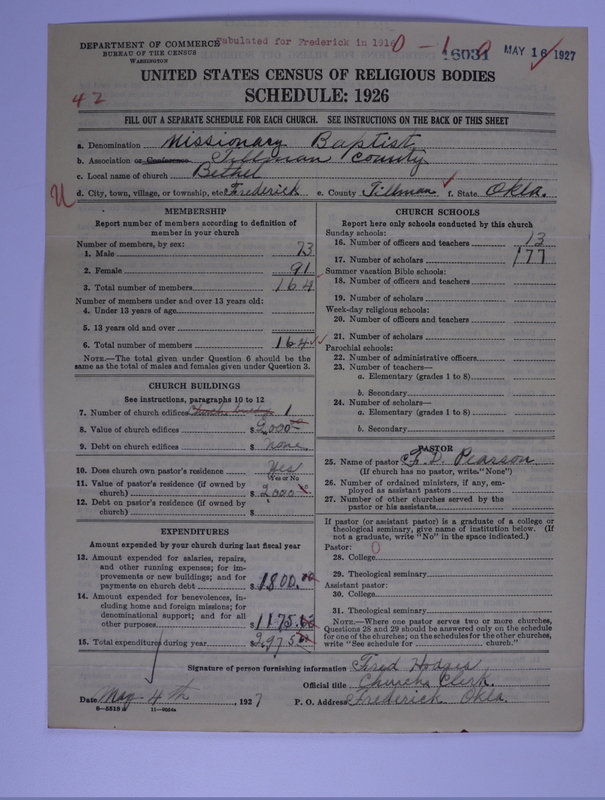 DEPARTMENT OF COMMERCE
BUREAU OF THE CENSUS
WASHINGTON
Tabulated for Frederick in 1916
0-1-0
16031
MAY 16 1927
42
UNITED STATES CENSUS OF RELIGIOUS BODIES
SCHEDULE: 1926
FILL OUT A SEPARATE SCHEDULE FOR EACH CHURCH. SEE INSTRUCTIONS ON THE BACK OF THIS SHEET
a. Denomination Missionary Baptist
b. Association or Conference Tillman County
c. Local name of church Bethel
d. City, town, village, or township, etc. Frederick e. County Tillman f. State Okla.
MEMBERSHIP
Report number of members according to definition of
member in your church
Number of members, by sex:
1. Male 73
2. Female 91
3. Total number of members 164
Number of members under and over 13 years old:
4. Under 13 years of age
5. 13 years old and over
6. Total number of members 164
NOTE.—The total given under Question 6 should be the
same as the total of males and females given under Question 3.
CHURCH BUILDINGS
See instructions, paragraphs 10 to 12
7. Number of church edifices 1
8. Value of church edifices $ 2,000.00
9. Debt on church edifices $ None
10. Does church own pastor's residence Yes
Yes or No
11. Value of pastor's residence (if owned by
church) $ 2000
12. Debt on pastor's residence (if owned by
church) $
EXPENDITURES
Amount expended by your church during last fiscal year
13. Amount expended for salaries, repairs,
and other running expenses; for im-
provements or new buildings; and for
payments on church debt $ 1800.00
14. Amount expended for benevolences, in-
cluding home and foreign missions; for
denominational support; and for all
other purposes $ 1175.00
15. Total expenditures during year $ 2975
CHURCH SCHOOLS
Report here only schools conducted by this church
Sunday schools:
16. Number of officers and teachers 13
17. Number of scholars 177
Summer vacation Bible schools:
18. Number of officers and teachers
19. Number of scholars
Week-day religious schools:
20. Number of officers and teachers
21. Number of scholars
Parochial schools:
22. Number of administrative officers
23. Number of teachers—
a. Elementary (grades 1 to 8)
b. Secondary
24. Number of scholars—
a. Elementary (grades 1 to 8)
b. Secondary
PASTOR
25. Name of pastor Pearson
(If church has no pastor, write "None")
26. Number of ordained ministers, if any, em-
ployed as assistant pastors
27. Number of other churches served by the
pastor or his assistants
If pastor (or assistant pastor) is a graduate of a college or
theological seminary, give name of institution below. (If
not a graduate, write "No" in the space indicated.)
Pastor: 0
28. College
29. Theological seminary
Assistant pastor:
30. College
31. Theological seminary
NOTE.—Where one pastor serves two or more churches,
Questions 28 and 29 should be answered only on the schedule
for one of the churches; on the schedules for the other churches,
write "See schedule for church."
Signature of person furnishing information Fred Hodges
Official title Church Clerk.
Date May 4th, 1927 P. O. Address Frederick Okla.